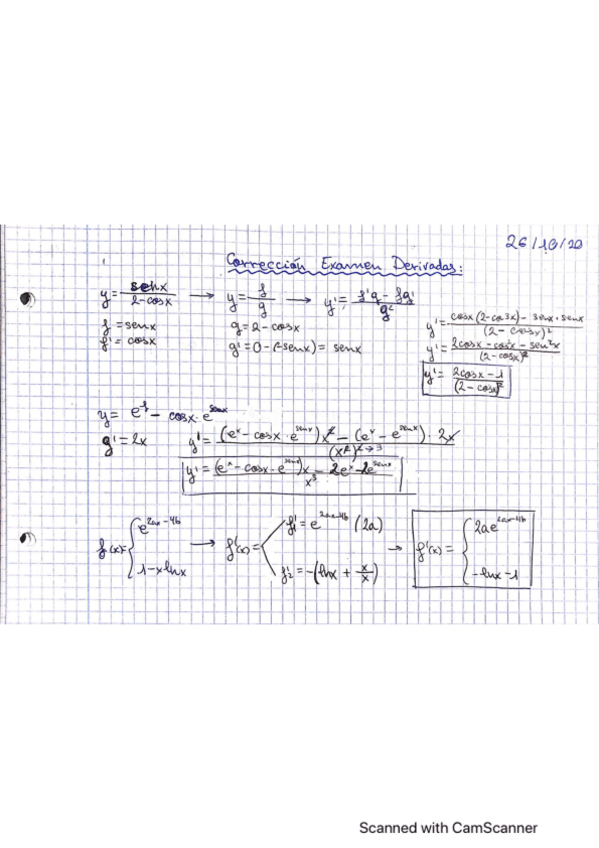 26/10/20
Corrección Examen Derivadas:
y = senx / 2-cosx → y = f / g → y' = f'g - fg' / g²
f = senx g = 2-cosx
f' = cosx g' = 0-(-senx) = senx
y' = cosx(2-cosx) - senx·senx / (2-cosx)²
y' = 2cosx - cos²x - sen²x / (2-cosx)²
y' = 2cosx - 1 / (2-cosx)²
y = e^x - cosx·e^senx
g' = 2x y' = (e^x - cosx·e^senx)x² - (e^x - e^senx)·2x / (x²)² → 3
y' = (e^x - cosx·e^senx)x - 2e^x - 2e^senx / x³
f(x) = { e^2ax-4b → f'(x) = f'1 = e^2ax-4b (2a) → f'(x) = { 2ae^2ax-4b
1-xlnx f'2 = -(lnx + x/x) -lnx-1
Scanned with CamScanner